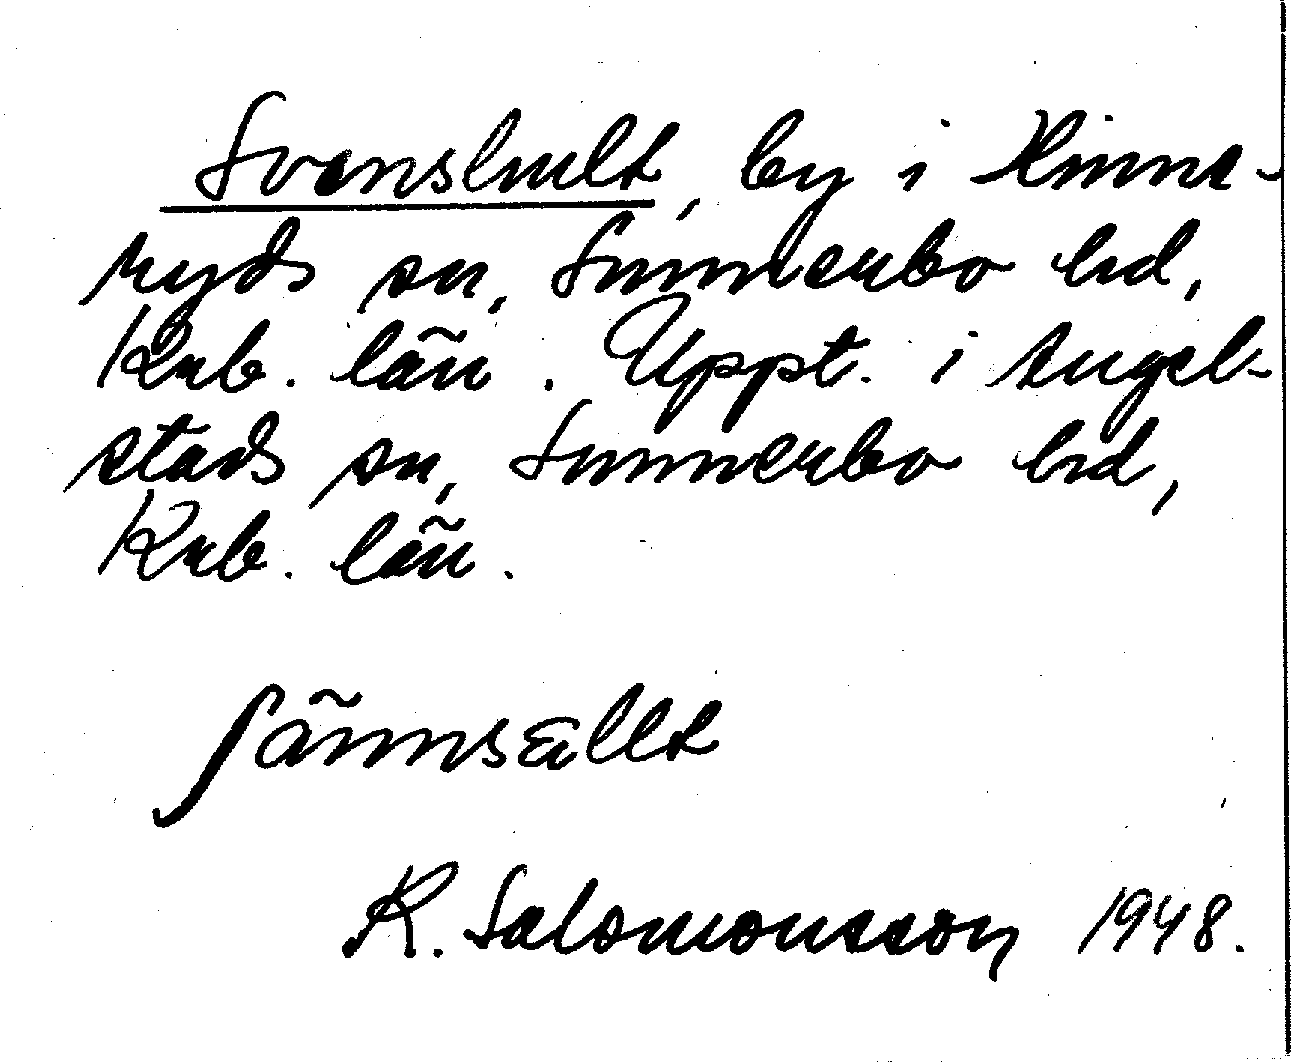 Svenshult, by i Hinne-
ryds sn, Sunnerbo hd,
Krb. län. Uppt. i Angel-
stads sn, Sunnerbo hd,
Krb. län.
K. Salomonsson 1948.